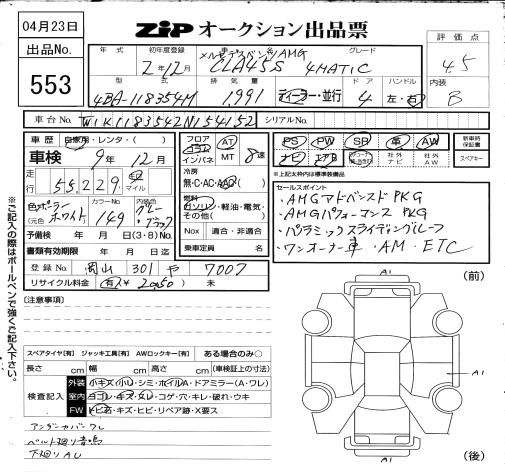 04月23日
ZiP オークション出品票
出品No.
553
年式
初年度登録 2年12月
車名 メルセデスベンツAMG
CLA45S
グレード
4MATIC
評価点
4.5
型式
4BA-118354M
排気量
1,991
ディーラー・並行
ドア
4
ハンドル
左・右
内装
B
車台No. W1K1183542N154152
シリアルNo.
車歴 自家用・レンタ・( )
車検 9年 12月
走行 55,229 km マイル
色 ポーラーホワイト
(元色
カラーNo. 149
内装色 グレー ブラック
予備検 年 月 日(3・8)No.
書類有効期限 年 月 日迄
登録No. 岡山 301 や 7007
リサイクル料金 有 ¥ 未
フロア コラム インパネ
AT MT 8速
冷房
無・C・AC・AAC
燃料
ガソリン・軽油・電気・
その他( )
Nox 適合・非適合
乗車定員 名
PS PW SR 革 AW
ナビ エアB 社外ナビ 社外AW
新車時保証書
スペアキー
※上記太枠内は手ongoing
セールスポイント
・AMGアドバンスドPKG
・AMGパフォーマンスPKG
・パノラミックスライディングルーフ
・ワンオーナー車 ・AM・ETC
※ご記入の際はボールペンで強くご記入下さい。
[注意事項]
スペアタイヤ[有] ジャッキ工具[有] AWロックキー[有] ある場合のみ○
長さ cm 幅 cm 高さ cm (車検証上の寸法)
検査記入
外装 小キズ・小ヘコ・シミ・ホイルA・ドアミラー(A・ワレ)
室内 ヨゴレ・キズ・スレ・コゲ・穴・キレ・破れ・ウキ
FW トビ石・キズ・ヒビ・リペア跡・X要ス
アンダーカバーワレ
ベルト廻り音鳴
下廻りAU
(前)
A1
A1
A1
(後)